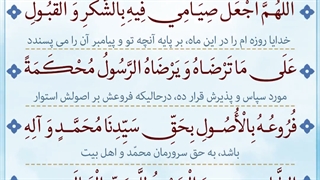 اَللّهُمَّ اجْعَلْ صِیَامِي فِیهِ بِالشُّكْرِ وَ الْقَبُولِ
خدایا روزه ام را در این ماه، بر پایه آنچه تو و پیامبر آن را می پسندد
عَلَى مَا تَرْضَاهُ وَ یَرْضَاهُ الرَّسُولُ مُحْكَمَةً
مورد سپاس و پذیرش قرار ده، درحالیکه فروعش بر اصولش استوار
فُرُوعُهُ بِالْأُصُولِ بِحَقِّ سَیِّدِنَا مُحَمَّدٍ وَ آلِهِ
باشد، به حق سرورمان محمّد و اهل بیت